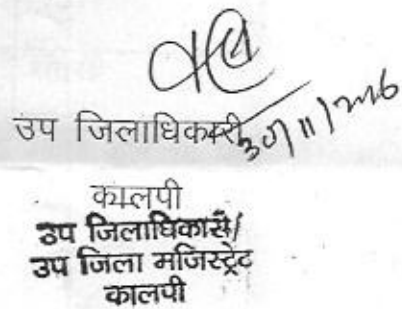 उप जिलाधिकारी 30/11/2016
कालपी
उप जिलाधिकारी/
उप जिला मजिस्ट्रेट
कालपी